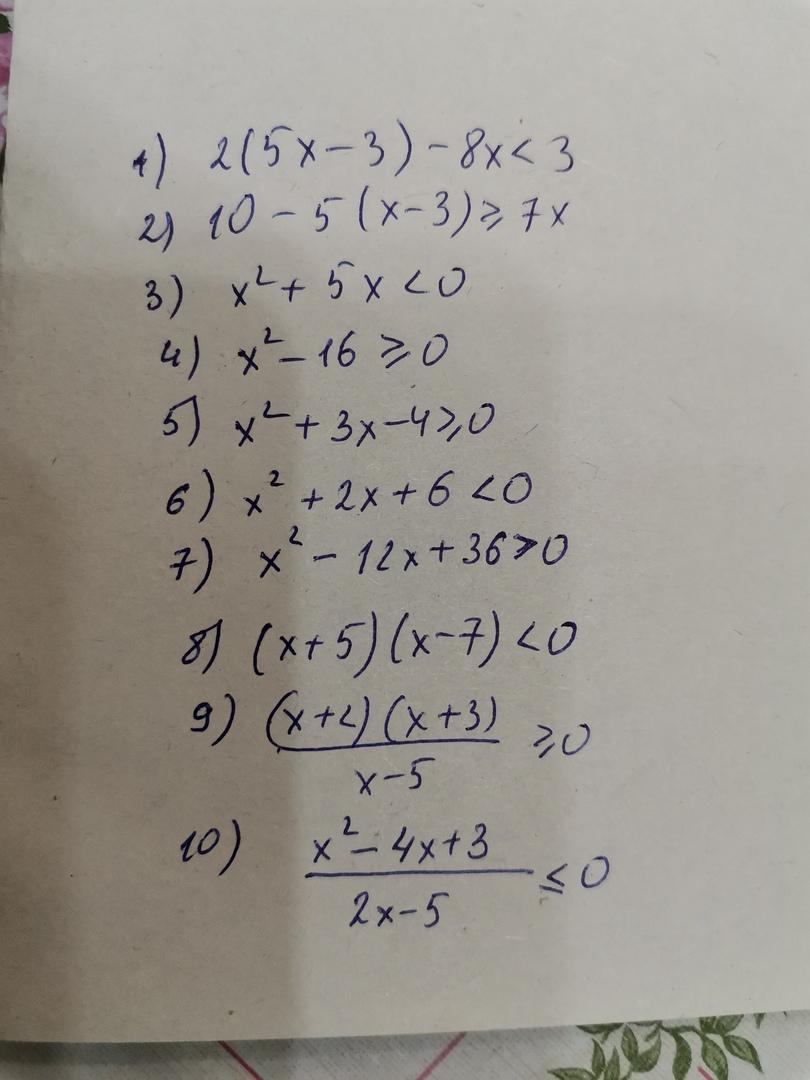 1) 2(5x-3)-8x<3
2) 10-5(x-3)≥7x
3) x²+5x<0
4) x²-16≥0
5) x²+3x-4≥0
6) x²+2x+6<0
7) x²-12x+36>0
8) (x+5)(x-7)<0
9) (x+2)(x+3)/x-5 ≥0
10) x²-4x+3/2x-5 ≤0